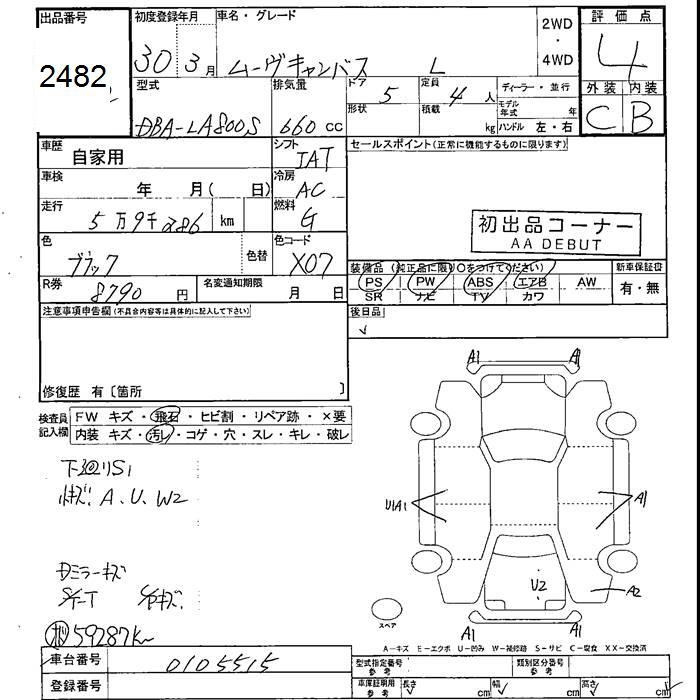 出品番号
2482
初度登録年月
30 3月
車名・グレード
ムーヴキャンバス L
2WD
・
4WD
評価点
4
外装 内装
C B
型式
DBA-LA800S
排気量
660 cc
ドア 5
形状
定員 4人
積載 kg
ディーラー・並行
モデル年式 年
ハンドル 左・右
車歴
自家用
シフト
IAT
車検
年 月( 日)
冷房
AC
走行
5万9千286 km
燃料
G
色
ブラック
色替
色コード
X07
R券
8790 円
名変通知期限
月 日
セールスポイント(正常に機能するものに限ります)
初出品コーナー
AA DEBUT
装備品(純正品に限り○をつけてください)
PS PW ABS エアB AW
SR ナビ TV カワ
新車保証書
有・無
後日品
注意事項申告欄(不具合内容等は具体的に記入して下さい)
修復歴 有〔箇所 〕
検査員記入欄
FW キズ・飛石・ヒビ割・リペア跡・×要
内装 キズ・汚レ・コゲ・穴・スレ・キレ・破レ
下廻りS1
小キズ、A、U、W2
Dミラーキズ
59287km
A1 A1
U1A1 A1
U2
A2
A1 A1
スペア
A-キズ E-エクボ U-凹み W-補修跡 S-サビ C-腐食 XX-交換済
車台番号
0105515
登録番号
型式指定番号
参考
類別区分番号
参考
車庫証明用
参考
長さ cm 幅 cm 高さ cm